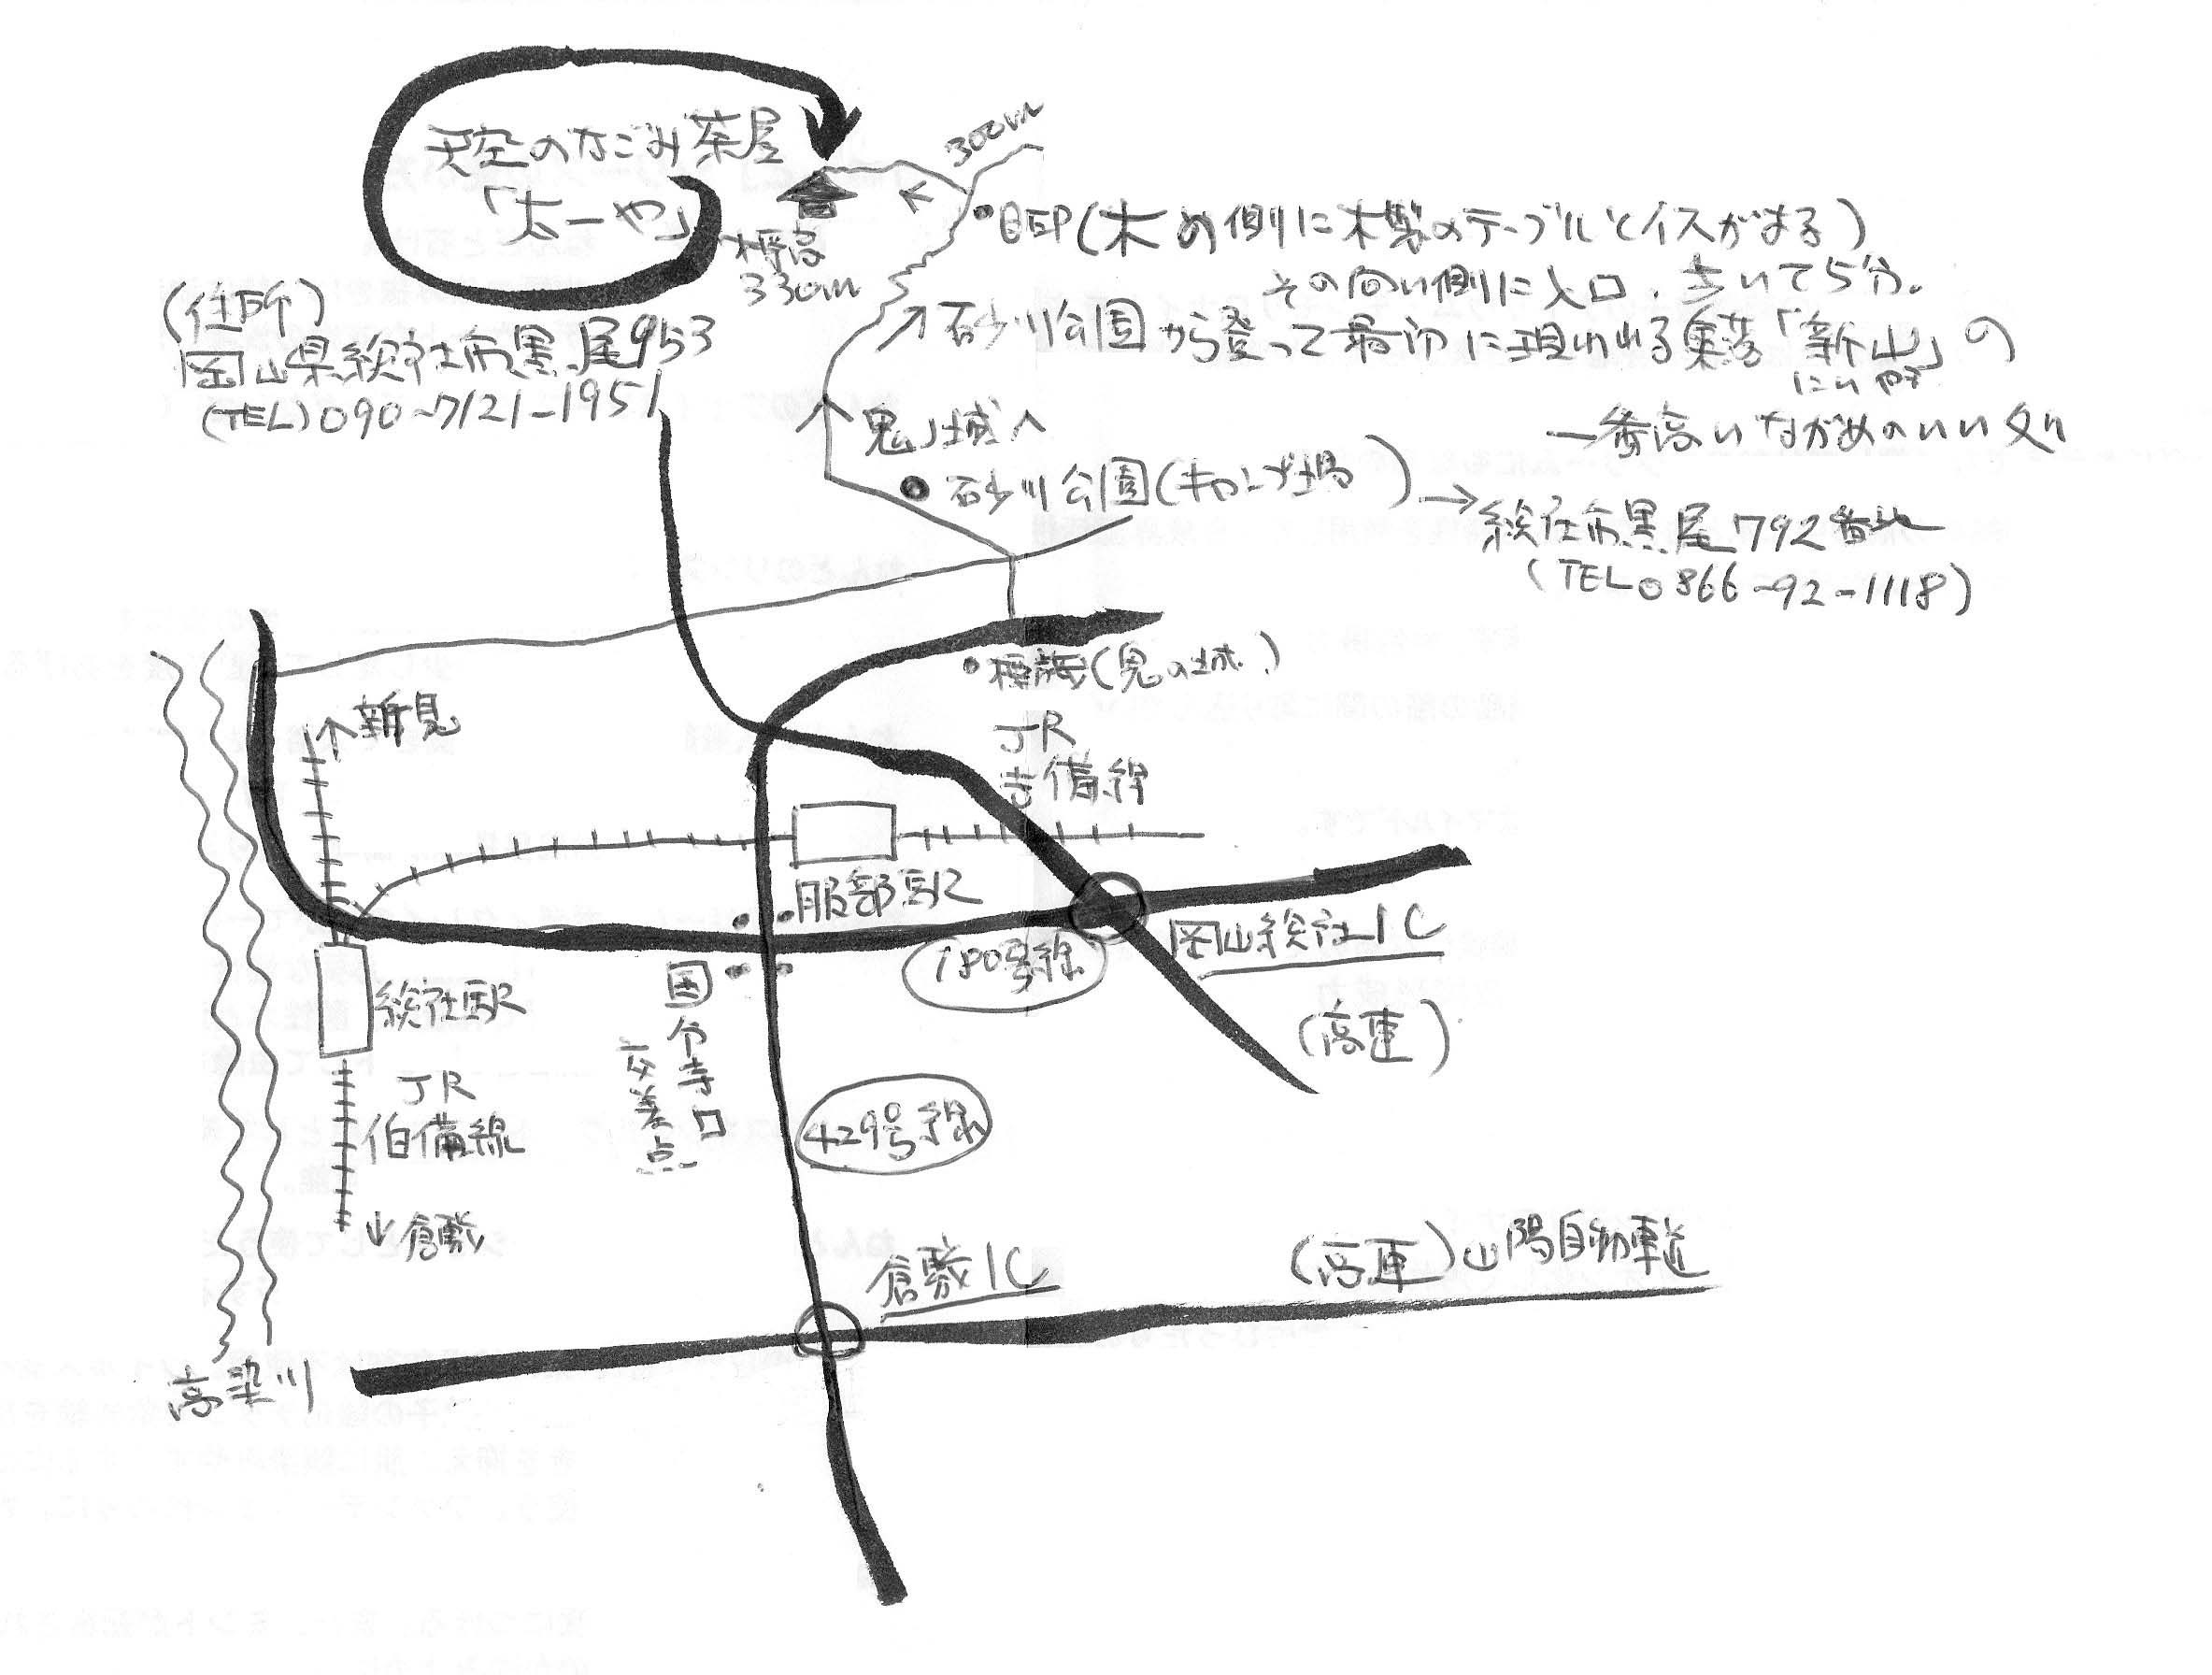 天空のなごみ茶屋
「太一や」
標高
330m
300m
(住所)
岡山県総社市黒尾953
(TEL)090-7121-1951
目印(木の側に木製のテーブルとイスがある)
その向い側に入口、歩いて5分。
↗砂川公園から登って最初に現われる集落「新山」の
にいやま
一番高いながめのいい処
鬼ノ城へ
砂川公園(キャンプ場)→
総社市黒尾792番地
(TEL0866-92-1118)
標識(鬼の城)
↑新見
JR
吉備線
服部駅
180号線
岡山総社IC
(高速)
総社駅
国分寺口
交差点
JR
伯備線
↓倉敷
429号線
倉敷IC
(高速)山陽自動車道
高梁川